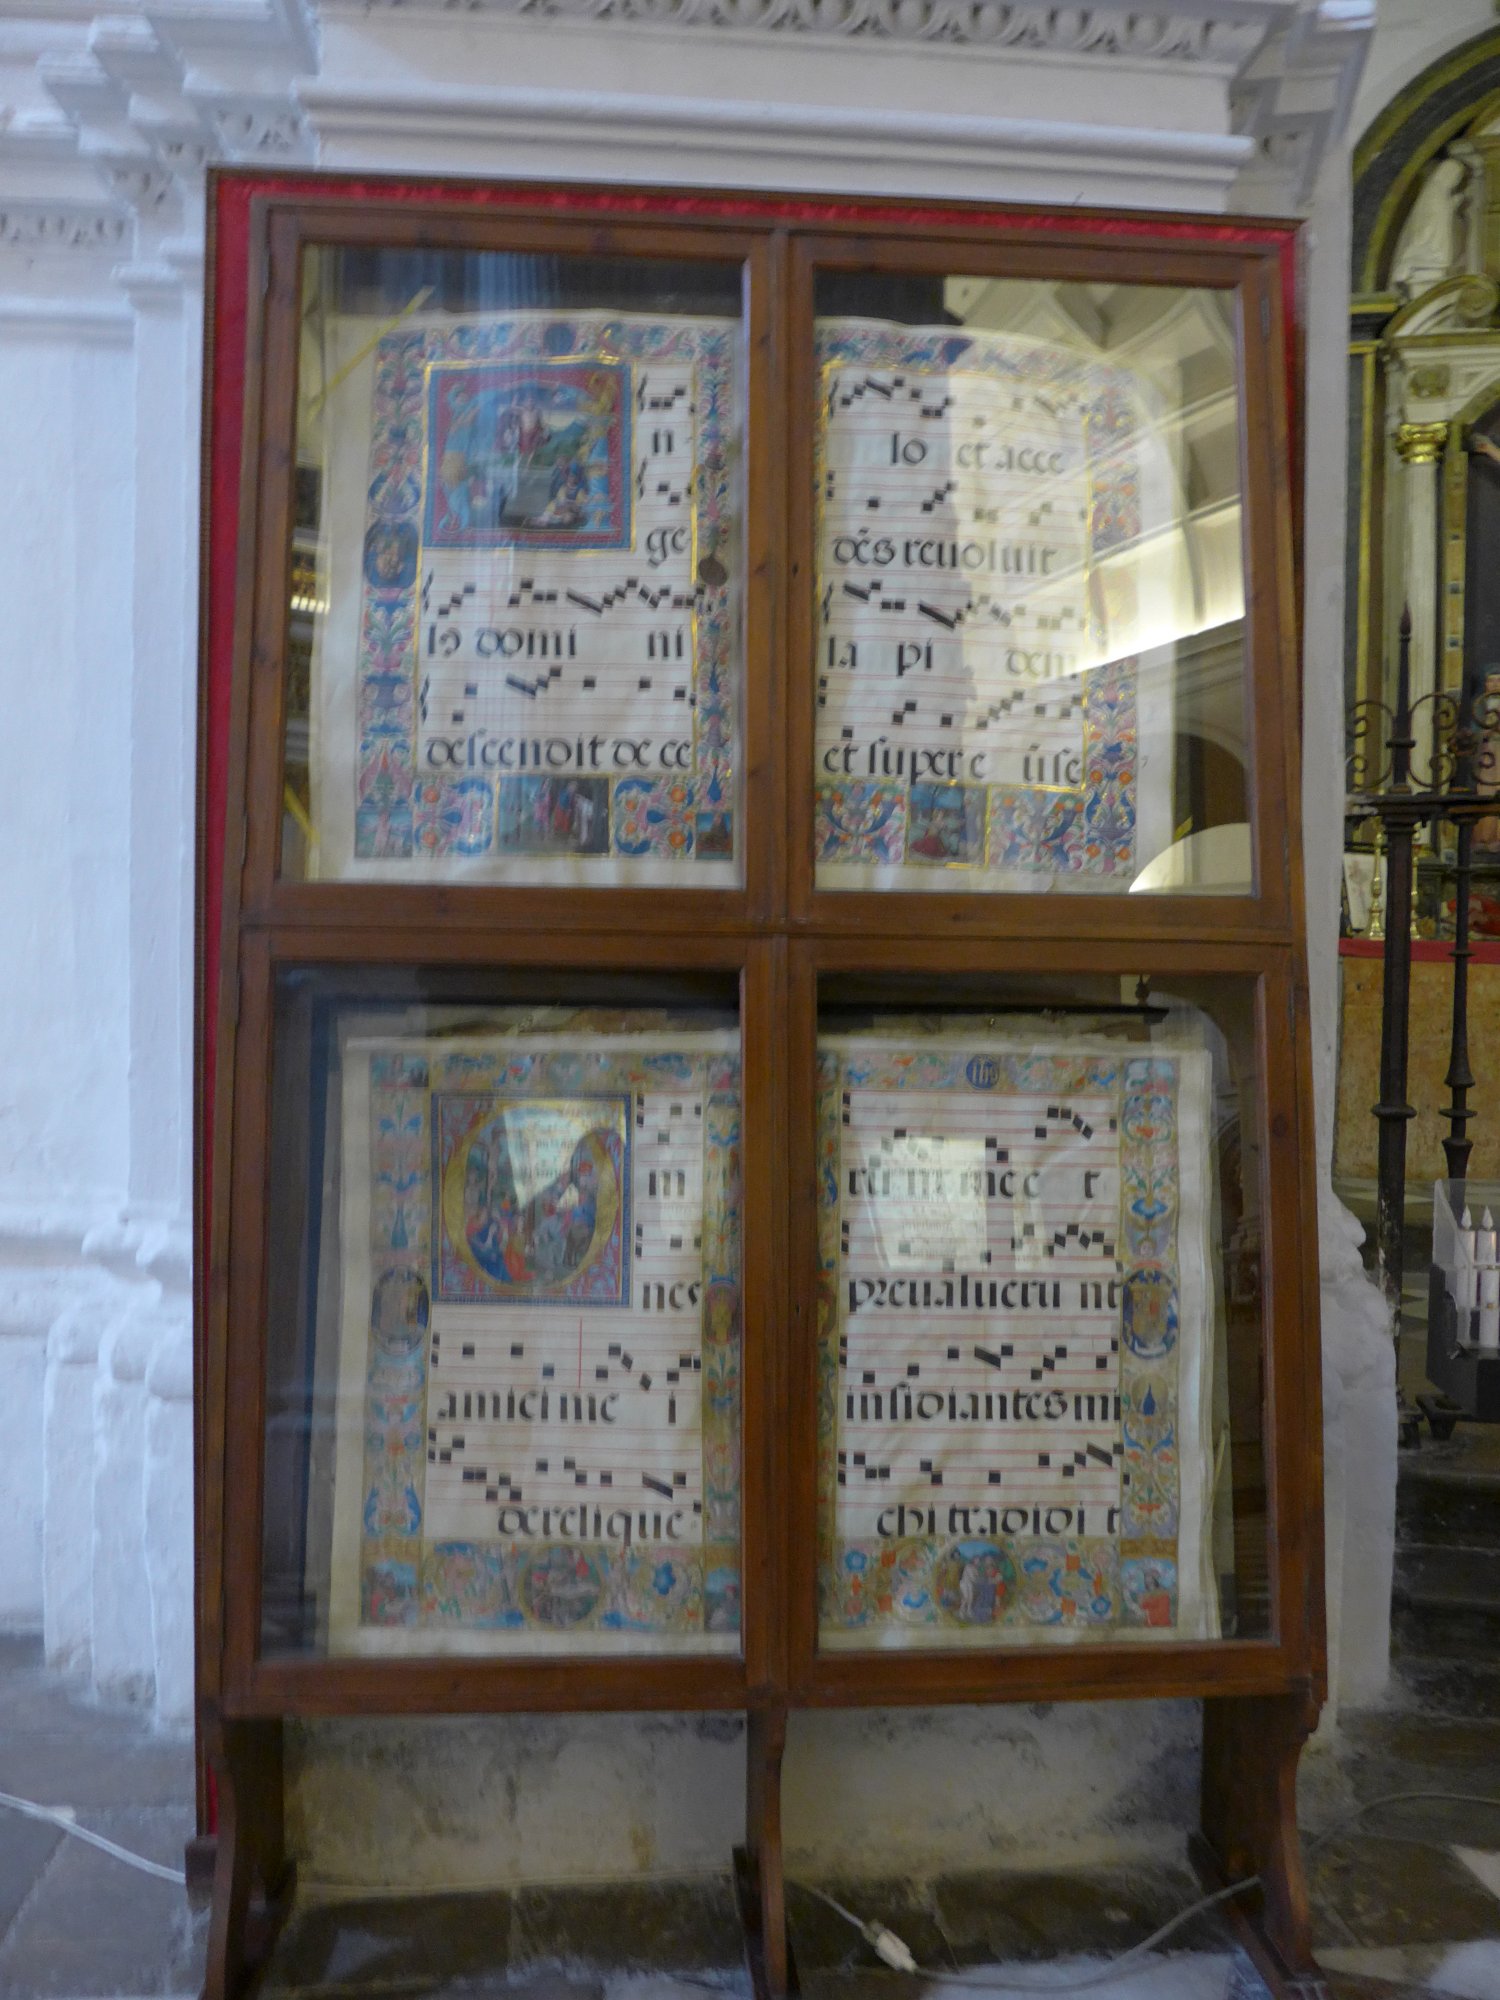 n
ge
lꝰ domi ni
descendit de ce
lo et acce
dẽs reuoluit
la pi dem
et super e ũ se
m
nes
amici me i
derelique
ru nt me e t
preualueru nt
insidiantes mi
chi tradidi t
ihs